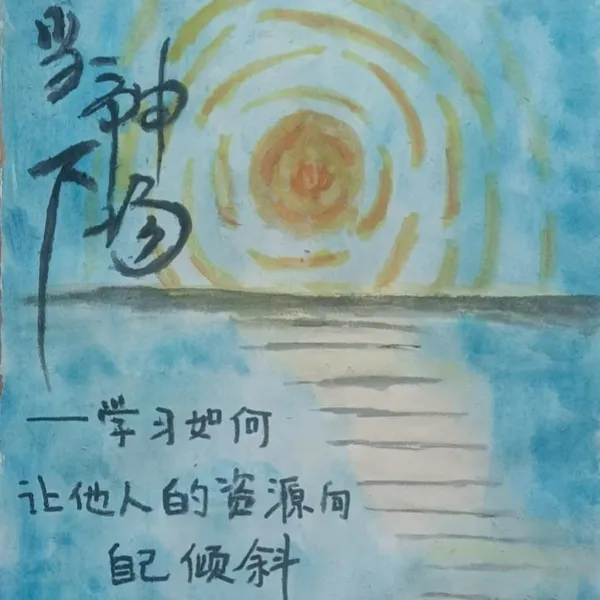 当神
下场
一学习如何
让他人的资源向
自己倾斜